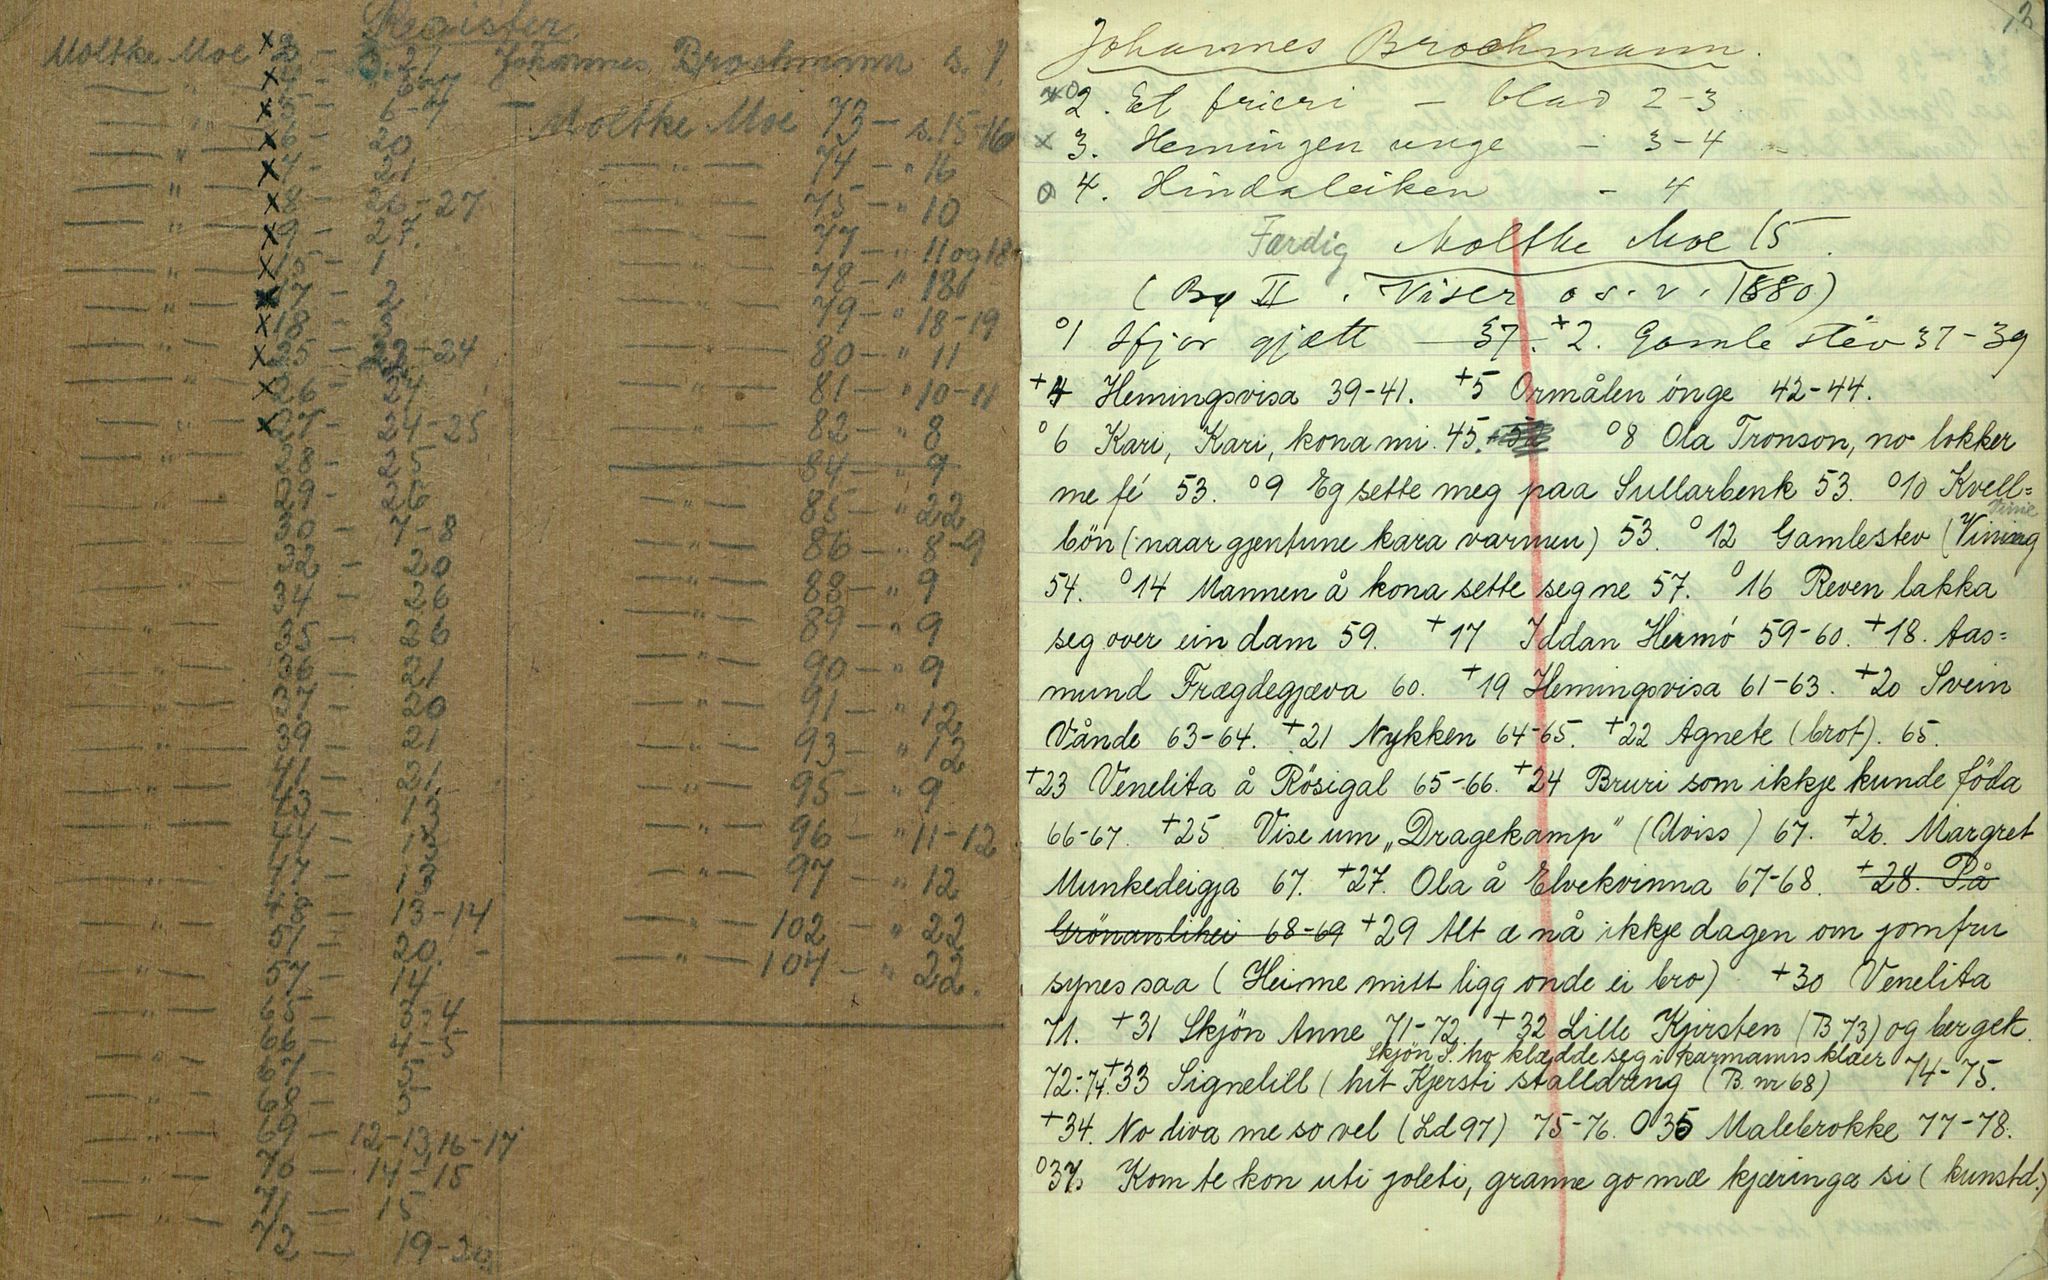 Register.
Moltke Moe 2 — s. 21
— " — 4 — 6-7
— " — 5 — 6-7
— " — 6 — 20
— " — 7 — 21
— " — 8 — 26-27
— " — 9 — 27.
— " — 15 — 1
— " — 17 — 2
— " — 18 — 3
— " — 25 — 22-24
— " — 26 — 24
— " — 27 — 24-25
— " — 28 — 25
— " — 29 — 26
— " — 30 — 7-8
— " — 32 — 20
— " — 34 — 26
— " — 35 — 26
— " — 36 — 21
— " — 37 — 20
— " — 39 — 21
— " — 41 — 21.
— " — 43 — 13
— " — 44 — 12
— " — 47 — 13
— " — 48 — 13-14
— " — 51 — 20.
— " — 57 — 14
— " — 65 — 3-4
— " — 66 — 4-5
— " — 67 — 5
— " — 68 — 5
— " — 69 — 12-13, 16-17
— " — 70 — 14-15
— " — 71 — 15
— " — 72 — 19-20
Johannes Brochmann s. 1.
Moltke Moe 73 — s. 15-16
— " — 74 — " 16
— " — 75 — " 10
— " — 77 — " 11 og 18
— " — 78 — " 18
— " — 79 — " 18-19
— " — 80 — " 11
— " — 81 — " 10-11
— " — 82 — " 8
— " — 84 — " 9
— " — 85 — " 22
— " — 86 — " 8-9
— " — 88 — " 9
— " — 89 — " 9
— " — 90 — " 9
— " — 91 — " 12
— " — 93 — " 12
— " — 95 — " 9
— " — 96 — " 11-12
— " — 97 — " 12
— " — 102 — " 22
— " — 104 — " 22.
Johannes Brochmann.
2. Et frieri — blad 2-3
x 3. Hemingen unge — 3-4
o 4. Hindaleiken — 4
Færdig Moltke Moe 15.
( II. Viser o s. v. 1880)
o 1 Ifjor gjætt — 37. + 2. Gamle stev 37-39
+4 Hemingsvisa 39-41. +5 Ormålen ónge 42-44.
o 6 Kari, Kari, kona mi. 45. o 8 Ola Tronson, no lokker
me fé 53. o 9 Eg sette meg paa Sullarbenk 53. o 10 Kvell=
bön (naar gjentune kara varmen) 53. o 12 Gamlestev (Vinie
54. o 14 Mannen å kona sette seg ne 57. o 16 Reven lakka
seg over ein dam 59. +17 Iddan Hermó 59-60. +18. Aas=
mund Frægdegjæva 60. +19 Hemingsvisa 61-63. +20 Svein
Vånde 63-64. +21 Nykken 64-65. +22 Agnete (brot). 65.
+23 Venelita å Rösigal 65-66. +24 Bruri som ikkje kunde föda
66-67. +25 Vise um „Dragekamp" (Uviss) 67. +26. Margret
Munkedeigja 67. +27. Ola å Elvekvinna 67-68. +28. På
Grönanlihei 68-69 +29 Alt æ nå ikkje dagen om jomfru
synes saa (Heime mitt ligg onde ei bro) +30 Venelita
71. +31 Skjön Anne 71-72. +32 Lille Kjirsten (B 73) og berget.
Skjön S. ho klædde seg i karmanns klæer
72-74. +33 Signelill (hit Kjersti stalldreng (B. nr 68) 74-75.
+34. No liva me so vel (Ld 97) 75-76. O 35 Malebrokke 77-78.
o 37. Kom te kon uti joleti, granne go mæ kjæringa si (kunstd.)